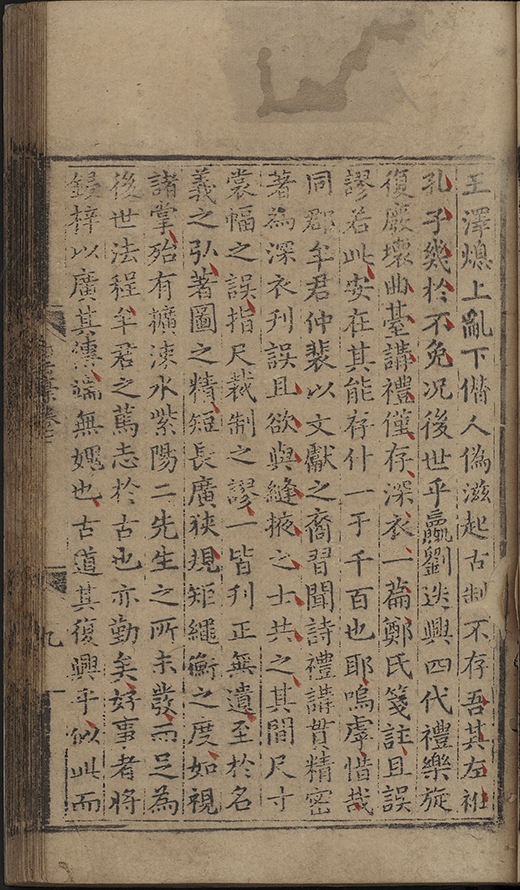 王澤熄上亂下僭人偽滋起古制不存吾其左袵
孔子幾於不免况後世乎嬴劉迭興四代禮樂旋
復厭壞曲臺講禮僅存深衣一篇鄭氏箋註且誤
謬若此安在其能存什一于千百也耶嗚虖惜哉
同郡牟君仲裴以文獻之裔習聞詩禮講貫精密
著為深衣刋誤且欲與縫掖之士共之其間尺寸
裳幅之誤指尺裁制之謬一皆刋正無遺至於名
義之弘著圖之精短長廣狹規矩繩衡之度如視
諸掌殆有擴涑水紫陽二先生之所未發而足為
後世法程牟君之篤志於古也亦勤矣好事者將
鋟梓以廣其傳端無媿也古道其復興乎似此而
九